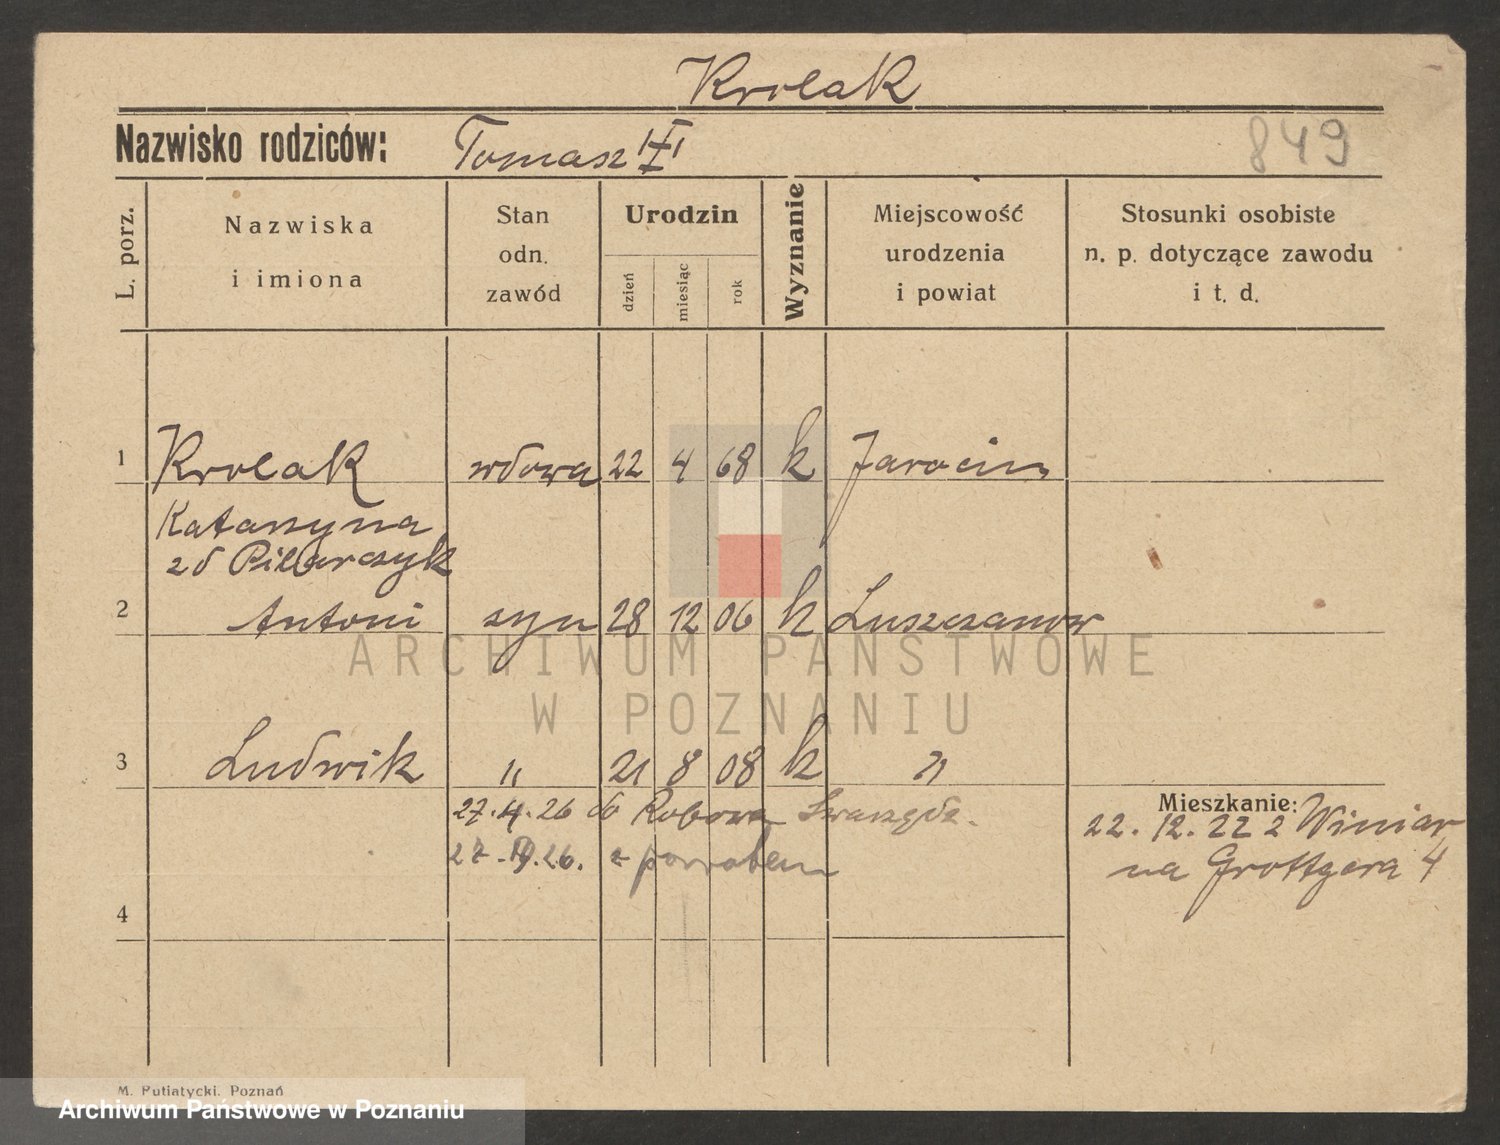 Krolak
Nazwisko rodziców: Tomasz
849
L. porz.
Nazwiska
i imiona
Stan
odn.
zawód
Urodzin
dzień
miesiąc
rok
Wyznanie
Miejscowość
urodzenia
i powiat
Stosunki osobiste
n. p. dotyczące zawodu
i t. d.
1 Krolak wdowa 22 4 68 k Jarocin
Katarzyna
zd Pilarczyk
2 Antoni syn 28 12 06 k Luszczanow
ARCHIWUM PAŃSTWOWE
W POZNANIU
3 Ludwik " 21 8 08 k "
Mieszkanie:
27.4.26 do Swarzędz.
22.12.22 z Winiar
26. z powrotem
na Grottgera 4
4
M. Putiatycki. Poznań
Archiwum Państwowe w Poznaniu